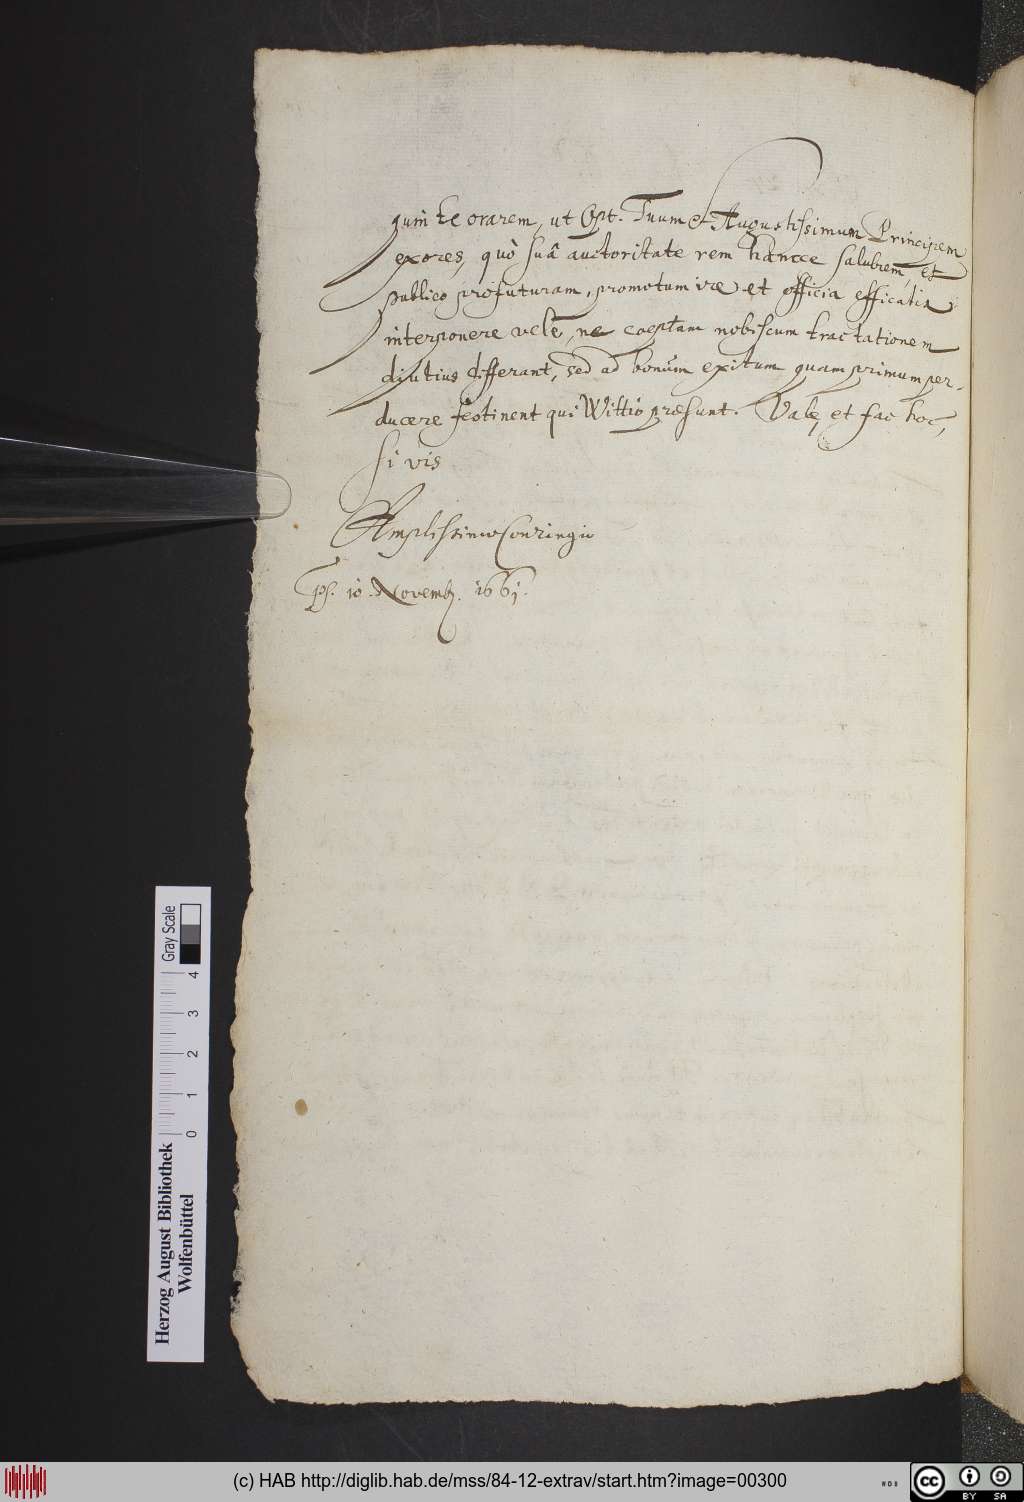 quin te orarem, ut Opt. Tuum et Augustissimum Principem
exores, quò suâ auctoritate rem hancce salubrem, et
publico profuturam, promotum ire et officia efficatia
interponere velit, ne coeptam nobiscum tractationem
diutius differant, sed ad bonum exitum quam primum per-
ducere festinent qui Wittio præsunt. Vale, et fac hoc,
si vis
Amplissimo Conringio
ps. 10. Novemb. 1661.
Herzog August Bibliothek
Wolfenbüttel
0 1 2 3 4
Gray Scale
(c) HAB http://diglib.hab.de/mss/84-12-extrav/start.htm?image=00300
cc BY SA